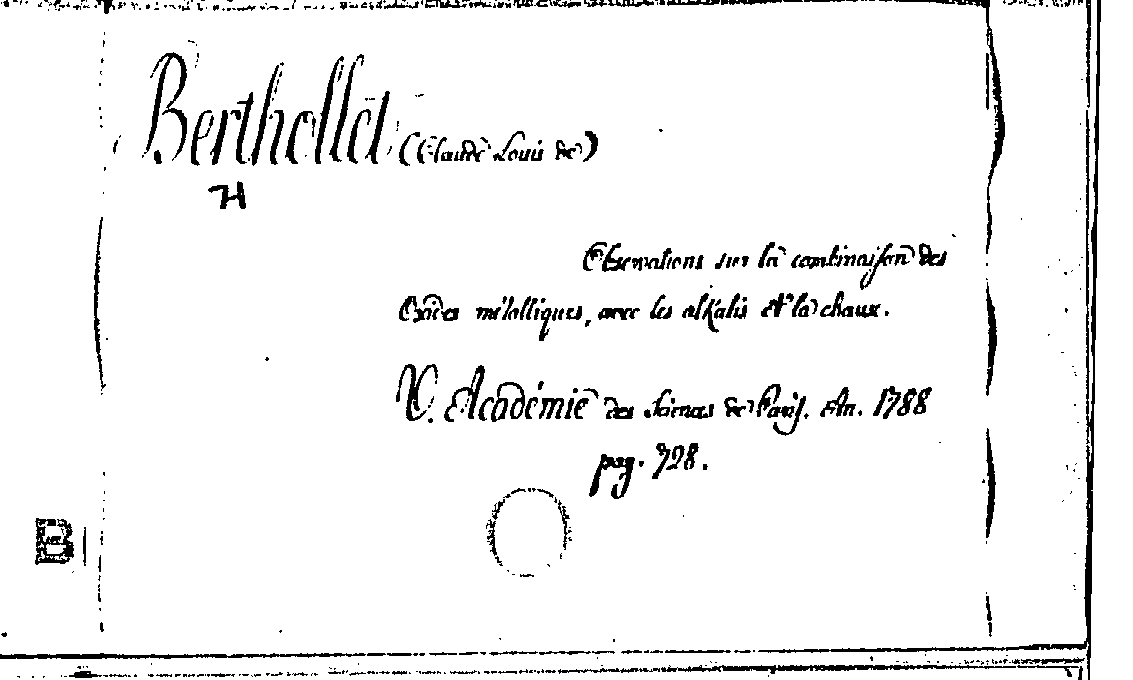 Berthollet (Claude Louis de)
H
Observations sur la combinaison des
Oxides métalliques, avec les alkalis et la chaux.
V. Académie des Sciences de Paris. An. 1788
pag. 728.
B